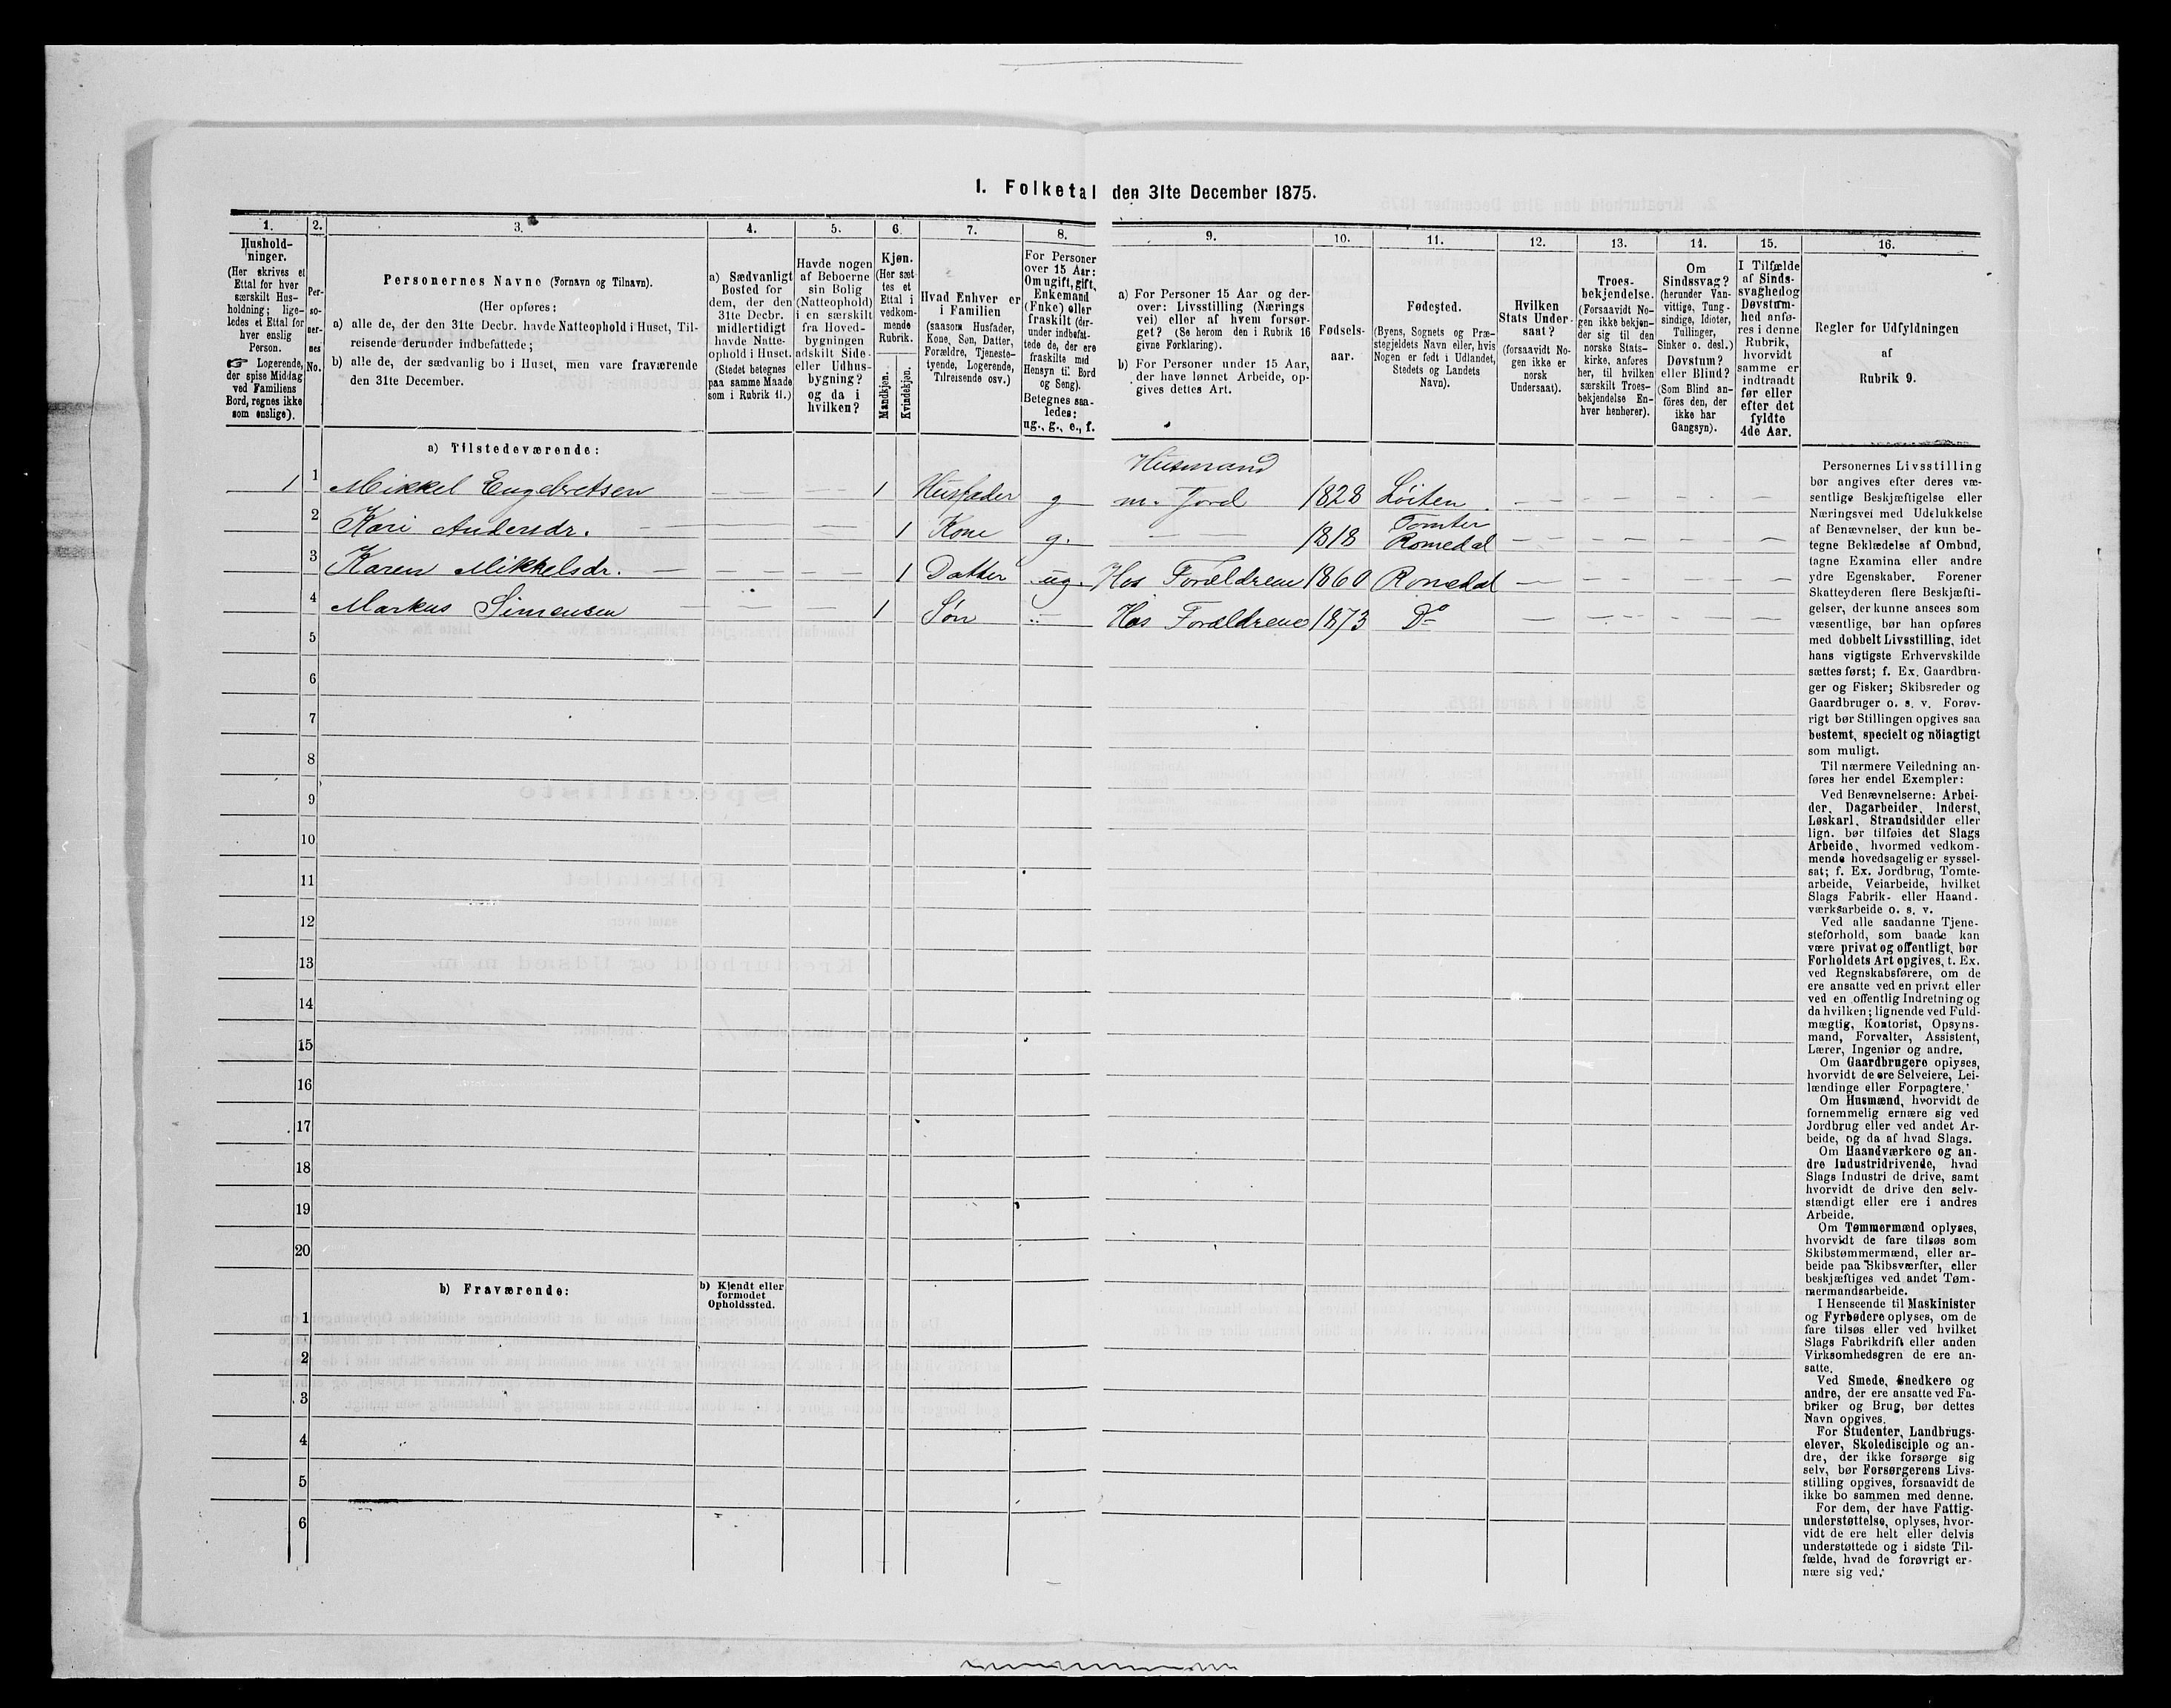 1. Folketal den 31te December 1875.
1.
Hushold-
ninger.
(Her skrives et
Ettal for hver
særskilt Hus-
holdning; lige-
ledes et Ettal for
hver enslig
Person.
☞ Logerende,
der spise Middag
ved Familiens
Bord, regnes ikke
som enslige).
2.
Per-
so-
ner-
nes
No.
3.
Personernes Navne (Fornavn og Tilnavn).
(Her opføres:
a) alle de, der den 31te Decbr. havde Natteophold i Huset, Til-
reisende derunder indbefattede;
b) alle de, der sædvanlig bo i Huset, men vare fraværende
den 31te December.
4.
a) Sædvanligt
Bosted for
dem, der den
31te Decbr.
midlertidigt
havde Natte-
ophold i Huset.
(Stedet betegnes
paa samme Maade
som i Rubrik 11.)
5.
Havde nogen
af Beboerne
sin Bolig
(Natteophold)
i en særskilt
fra Hoved-
bygningen
adskilt Side-
eller Udhus-
bygning?
og da i
hvilken?
6.
Kjøn.
(Her sæt-
tes et
Ettal i
vedkom-
mende
Rubrik.
Mandkjøn.
Kvindekjøn.
7.
Hvad Enhver er
i Familien
(saasom Husfader,
Kone, Søn, Datter,
Forældre, Tjeneste-
tyende, Logerende,
Tilreisende osv.)
8.
For Personer
over 15 Aar:
Om ugift, gift,
Enkemand
(Enke) eller
fraskilt (der-
under indbefat-
tede de, der ere
fraskilte med
Hensyn til Bord
og Seng).
Betegnes saa-
ledes:
ug., g., e., f.
9.
a) For Personer 15 Aar og der-
over: Livsstilling (Nærings
vei) eller af hvem forsør-
get? (Se herom den i Rubrik 16
givne Forklaring).
b) For Personer under 15 Aar,
der have lønnet Arbeide, op-
gives dettes Art.
10.
Fødsels-
aar.
11.
Fødested.
(Byens, Sognets og Præ-
stegjeldets Navn eller, hvis
Nogen er født i Udlandet,
Stedets og Landets
Navn).
12.
Hvilken
Stats Under-
saat?
(forsaavidt No-
gen ikke er
norsk
Undersaat).
13.
Troes-
bekjendelse.
(Forsaavidt No-
gen ikke bekjen-
der sig til den
norske Stats-
kirke, anføres
her, til hvilken
særskilt Troes-
bekjendelse En-
hver henhører).
14.
Om
Sindssvag?
(herunder Van-
vittige, Tung-
sindige, Idioter,
Tullinger,
Sinker o. desl.)
Døvstum?
eller Blind?
(Som Blind an-
føres den, der
ikke har
Gangsyn).
15.
I Tilfælde
af Sinds-
svaghed og
Døvstum-
hed anfø-
res i denne
Rubrik,
hvorvidt
samme er
indtraadt
før eller
efter det
fyldte
4de Aar.
16.
Regler for Udfyldningen
af
Rubrik 9.
a) Tilstedeværende:
Husmand
1 1 Mikkel Engebretsen — — — 1 Husfader g m. Jord 1828 Löiten - - - -
Tomter
2 Kari Andersdr. — — 1 Kone g. — — 1818 Romedal — — — —
3 Karen Mikkelsdr. — — — 1 Datter ug. Hos Forældrene 1860 Romedal — — — —
4 Markus Simensen — — — 1 Søn — Hos Forældrene 1873 Do — — — —
5
6
7
8
9
10
11
12
13
14
15
16
17
18
19
20
b) Fraværende:
b) Kjendt eller
formodet
Opholdssted.
1
2
3
4
5
6
Personernes Livsstilling
bør angives efter deres væ-
sentlige Beskjæftigelse eller
Næringsvei med Udelukkelse
af Benævnelser, der kun be-
tegne Beklædelse af Ombud,
tagne Examina eller andre
ydre Egenskaber. Forener
Skatteyderen flere Beskjæfti-
gelser, der kunne ansees som
væsentlige, bør han opføres
med dobbelt Livsstilling, idet
hans vigtigste Erhvervskilde
sættes først; f. Ex. Gaardbru-
ger og Fisker; Skibsreder og
Gaardbruger o. s. v. Forøv-
rigt bør Stillingen opgives saa
bestemt, specielt og nöiagtigt
som muligt.
Til nærmere Veiledning an-
føres her endel Exempler:
Ved Benævnelserne: Arbei-
der, Dagarbeider, Inderst,
Løskarl, Strandsidder eller
lign. bør tilføies det Slags
Arbeide, hvormed vedkom-
mende hovedsagelig er syssel-
sat; f. Ex. Jordbrug, Tomte-
arbeide, Veiarbeide, hvilket
Slags Fabrik- eller Haand-
værksarbeide o. s. v.
Ved alle saadanne Tjene-
steforhold, som baade kan
være privat og offentligt, bør
Forholdets Art opgives, t. Ex.
ved Regnskabsførere, om de
ere ansatte ved en privat eller
ved en offentlig Indretning og
da hvilken; lignende ved Fuld-
mægtig, Kontorist, Opsyns-
mand, Forvalter, Assistent,
Lærer, Ingeniør og andre.
Om Gaardbrugere oplyses,
hvorvidt de ere Selveiere, Lei-
lændinge eller Forpagtere.
Om Husmænd, hvorvidt de
fornemmelig ernære sig ved
Jordbrug eller ved andet Ar-
beide, og da af hvad Slags.
Om Haandværkere og an-
dre Industridrivende, hvad
Slags Industri de drive, samt
hvorvidt de drive den selv-
stændigt eller ere i andres
Arbeide.
Om Tømmermænd oplyses,
hvorvidt de fare tilsøs som
Skibstømmermænd, eller ar-
beide paa Skibsværfter, eller
beskjæftiges ved andet Tøm-
mermandsarbeide.
I Henseende til Maskinister
og Fyrbødere oplyses, om de
fare tilsøs eller ved hvilket
Slags Fabrikdrift eller anden
Virksomhedsgren de ere an-
satte.
Ved Smede, Snedkere og
andre, der ere ansatte ved Fa-
briker og Brug, bør dettes
Navn opgives.
For Studenter, Landbrugs-
elever, Skoledisciple og an-
dre, der ikke forsørge sig
selv, bør Forsørgerens Livs-
stilling opgives, forsaavidt de
ikke bo sammen med denne.
For dem, der have Fattig-
understøttelse, oplyses, hvor-
vidt de ere helt eller delvis
understøttede og i sidste Til-
fælde, hvad de forøvrigt er-
nære sig ved.